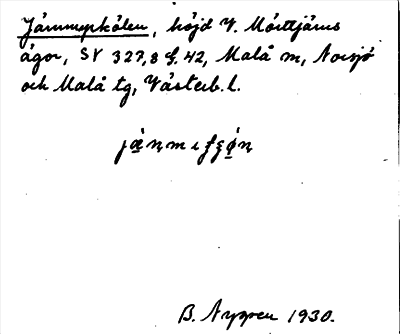 Jämmyrkölen, höjd V. Mörttjärns
ägor, SV 327, 8 f. 42, Malå sn, Norsjö
och Malå tg, Västerb. l.
B. Nygren 1930.